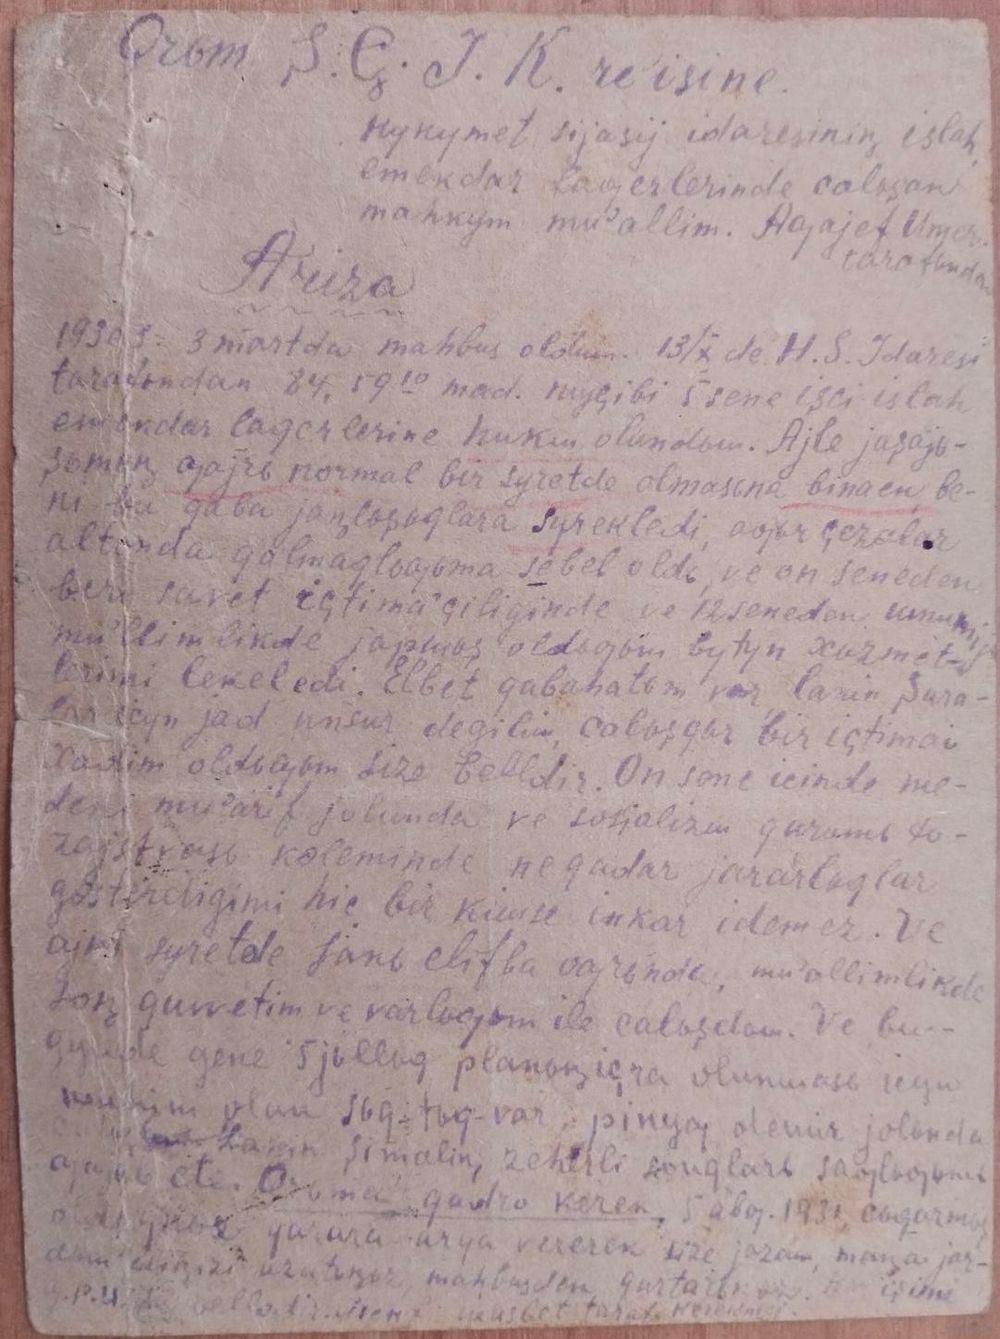 Qrьm Ş. Ç. I. K. re'isine.
Hykymet sijasij idaresinin̡ islah,
emekdar lagerlerinde calьşan
mahkym mu'allim. Agajef Umer.
tarafьndan
Ariza
3 martda mahbus oldum. 13/X de H. S. Idaresi
tarafьndan 84, 59¹⁰ mad. myçibi 5 sene işci islah
emekdar lagerlerine hukm olundьm. Ajle jaşajь-
şьmьn̡ gajrь normal bir syretde olmasьna binaen, be-
ni bu qaba jan̡lьşlьqlara syrekledi, aqьr çezalar
altьnda qalmaqlьqьma sebeb oldь, ve on seneden
beri savet içtima'çiliginde ve 12 seneden
mu'allimlikde japmьş oldьgьm bytyn xьzmet-
lerimi lekeledi. Elbet qabahatьm var, lakin Şura-
lar icyn jad unsur degilim, calьşqьr bir içtimai
xadim oldьgьm size bellidir. On sene icinde me-
deni mu'arif jolunda ve sosjalizm qurumь to-
koleminde ne qadar jararlьqlar
gosterdigimi hic bir kimse inkar idemez. Ve
ajni syretde janь elifba ogrьnda, mu'allimlikde
son̡ quvvetim ve varlьgьm ile calьşdьm. Ve bu-
gynde gene 5 jьllьq planьn̡ içra olunmasь icyn
olan sьq-tьq-var, pinjug demir jolьnda
Lakin şimalin̡ zeherli souqlarь saglьgьmь
ete. Qrьma qadro kerek, 1931
qarara arqa vererek size jazam, man̡a jar-
dьm elin̡izi uzatьn̡ьz, mahbusden qurtarьn̡ьz. işimi
G.P.U.